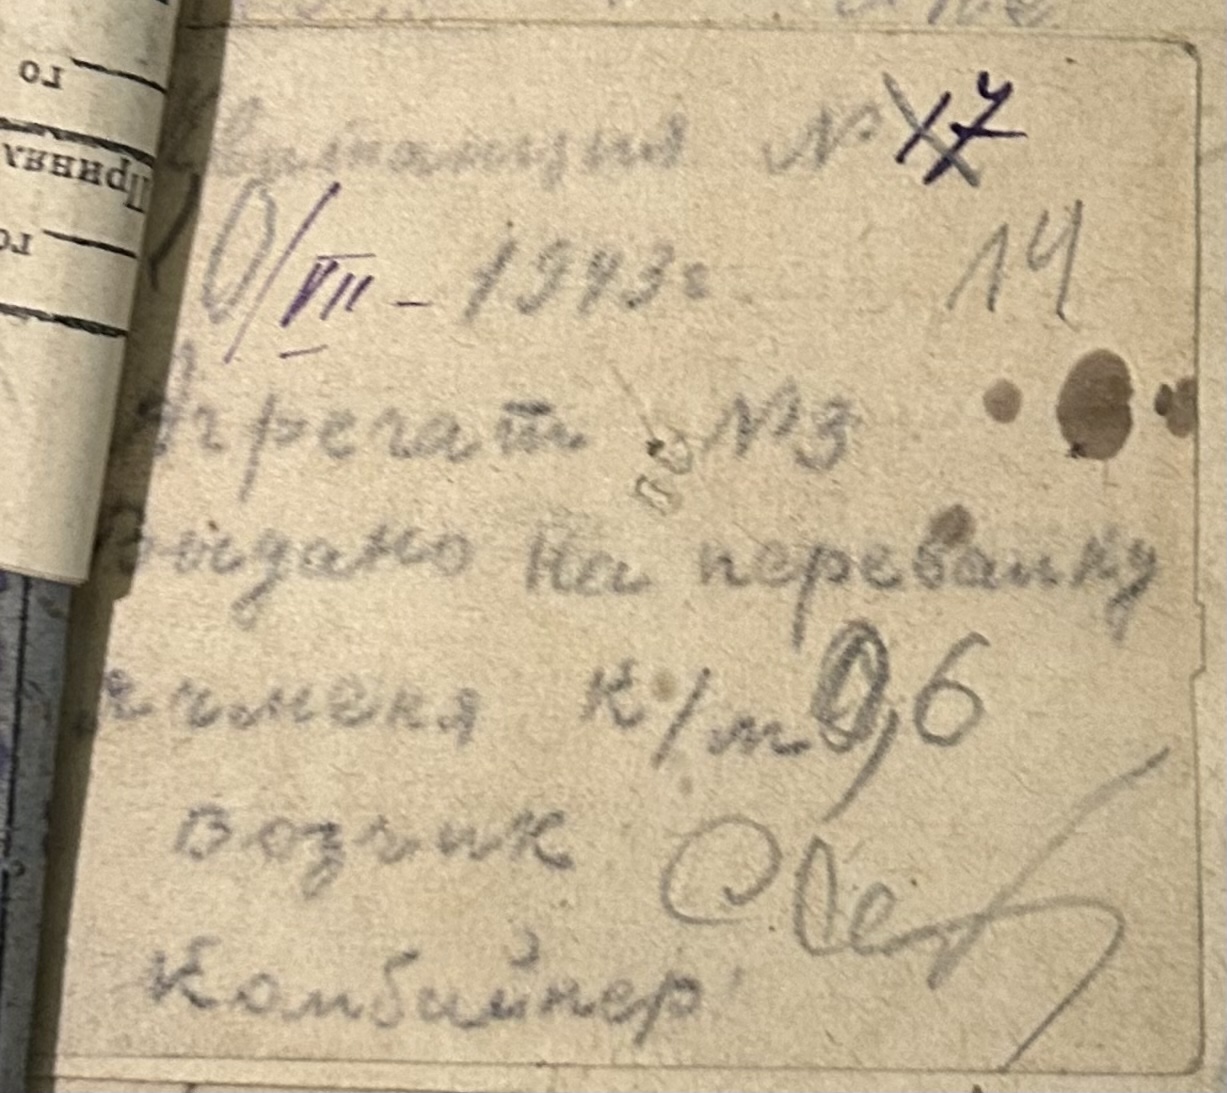 го
Принял
го
Квитанция № 17
14
0/VIII - 1943г
Агрегат № 3
Выдано на перевалку
ячменя к/м 0,6
возчик
Комбайнер